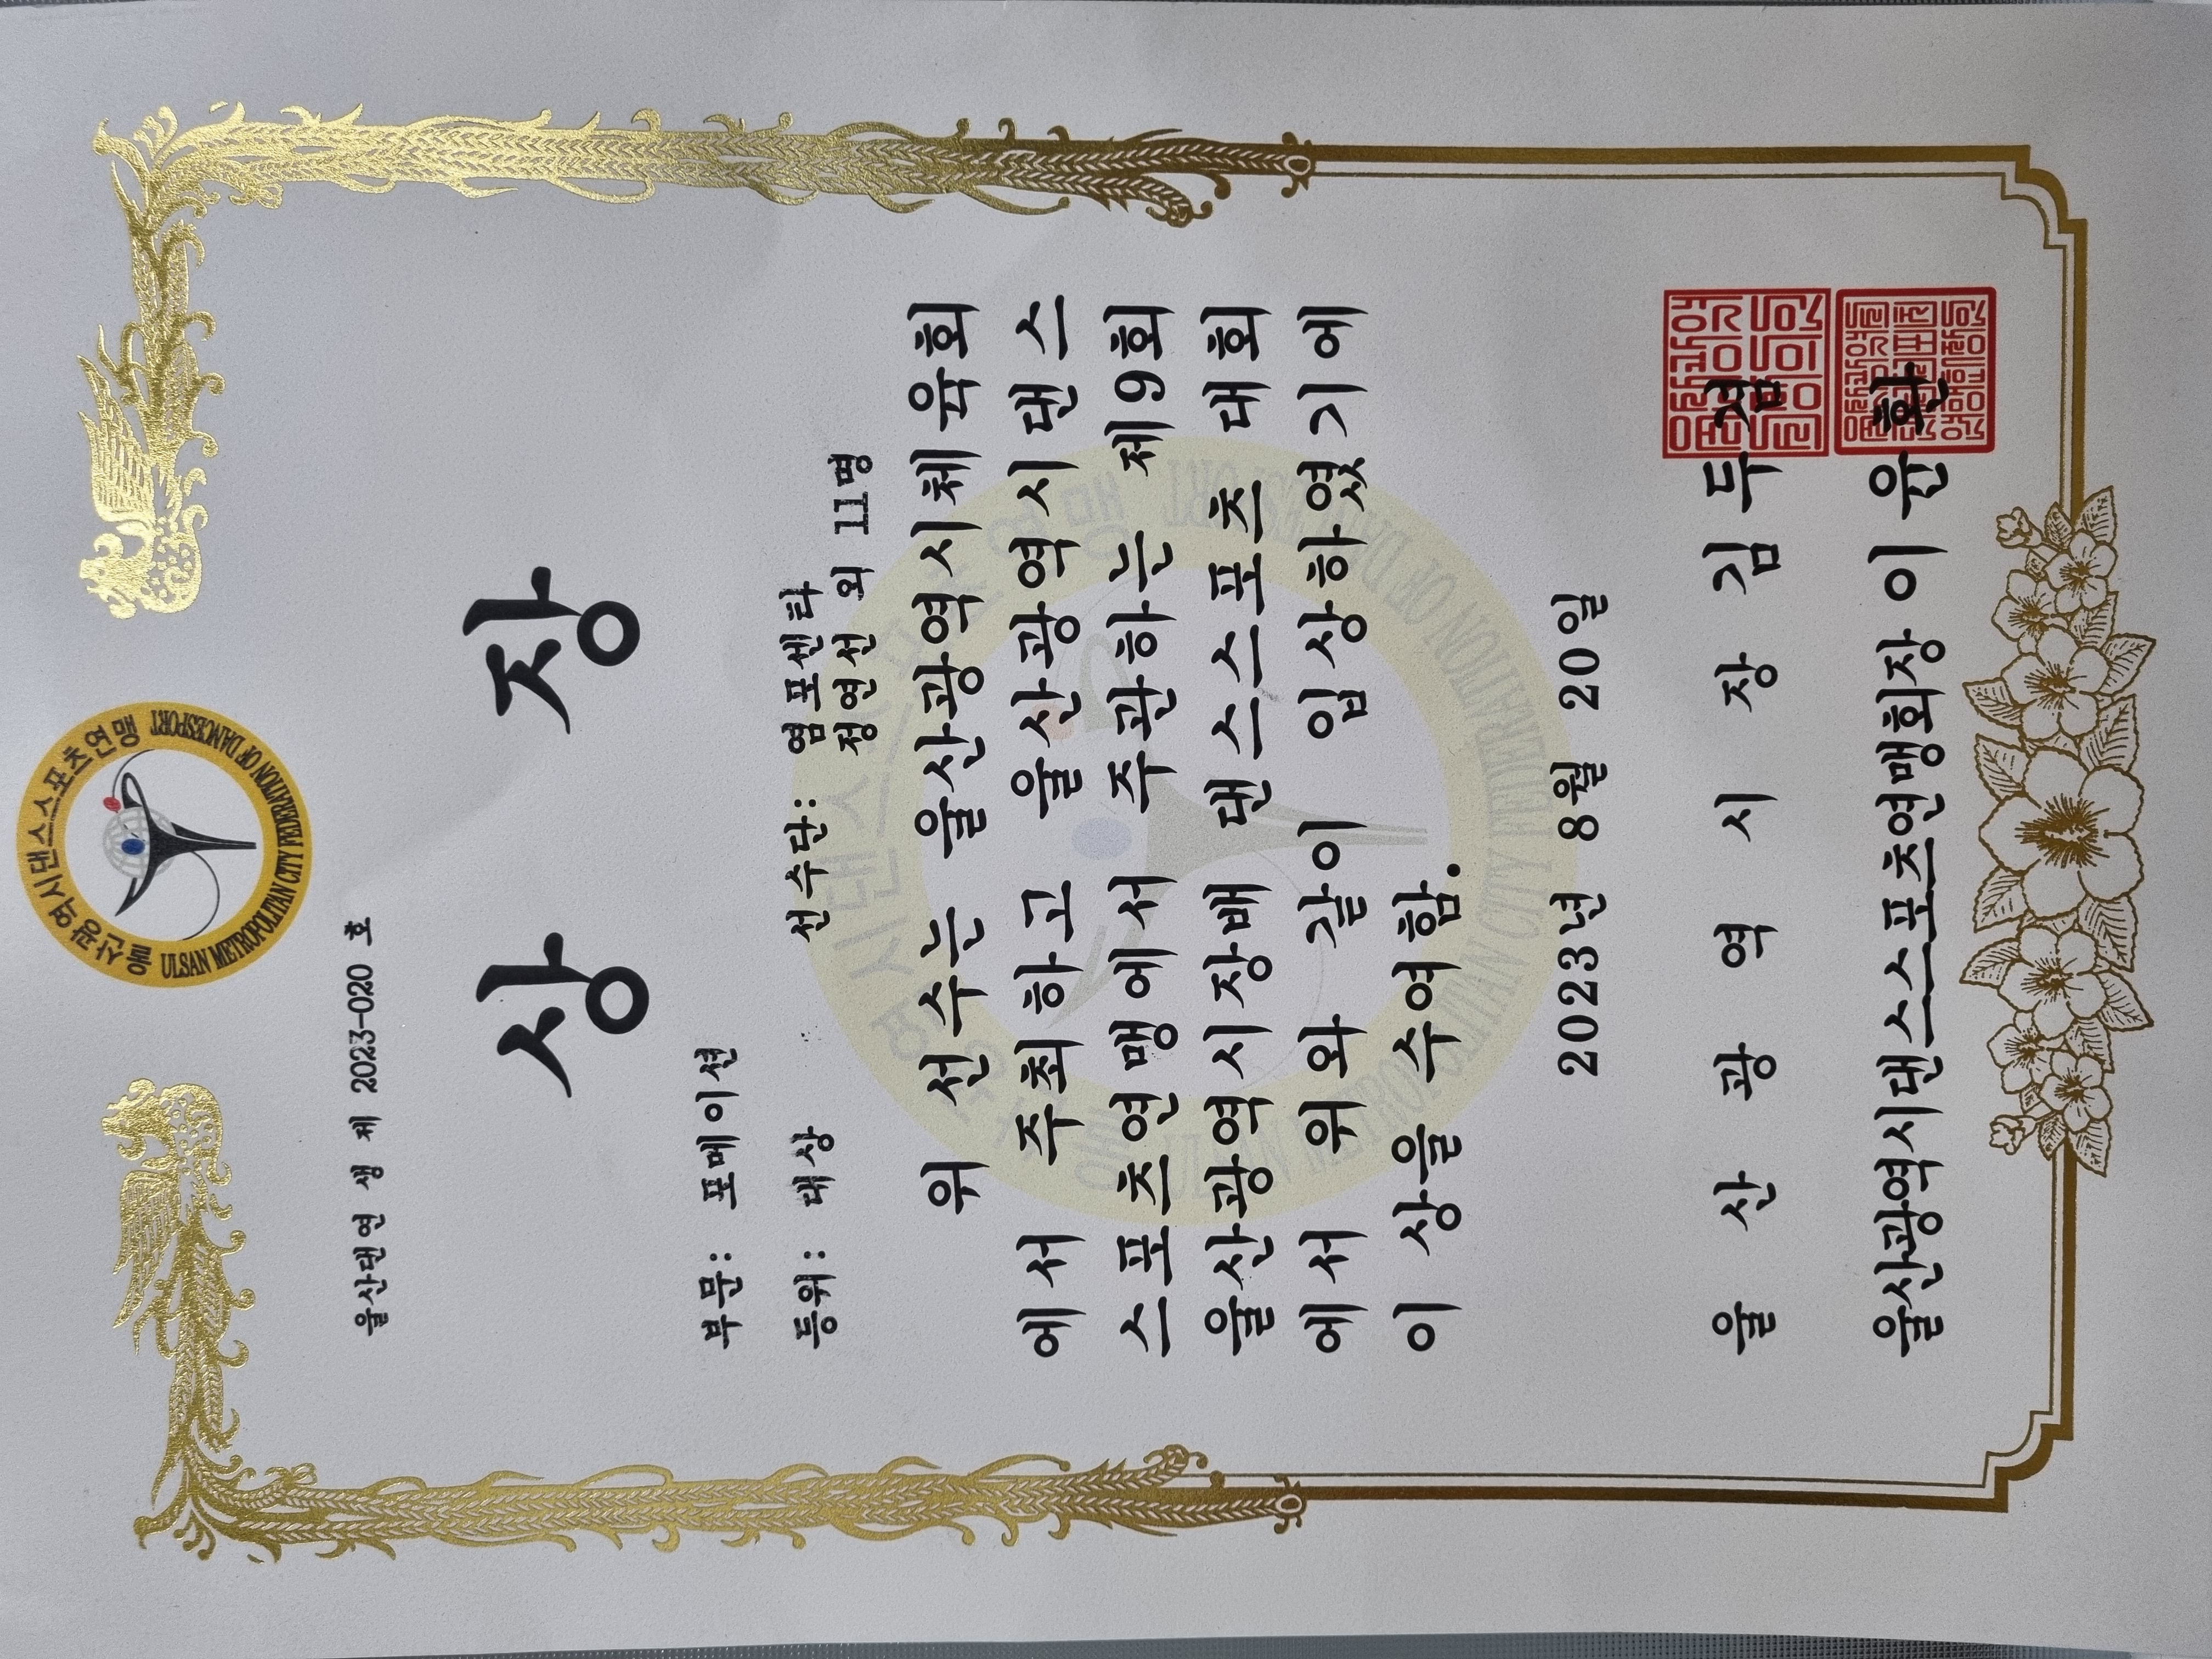 울산광역시댄스스포츠연맹
ULSAN METROPOLITAN CITY FEDERATION OF DANCESPORT
울산댄연 생 제 2023-020 호
상 장
부문: 포메이션
등위: 대상
선수단: 염포센타
정연선 외 11명
위 선수는 울산광역시체육회
에서 주최하고 울산광역시댄스
스포츠연맹에서 주관하는 제9회
울산광역시장배 댄스스포츠 대회
에서 위와 같이 입상하였기에
이 상을 수여함.
2023년 8월 20일
울 산 광 역 시 장 김 두 겸
울산광역시댄스스포츠연맹회장 이 원 환